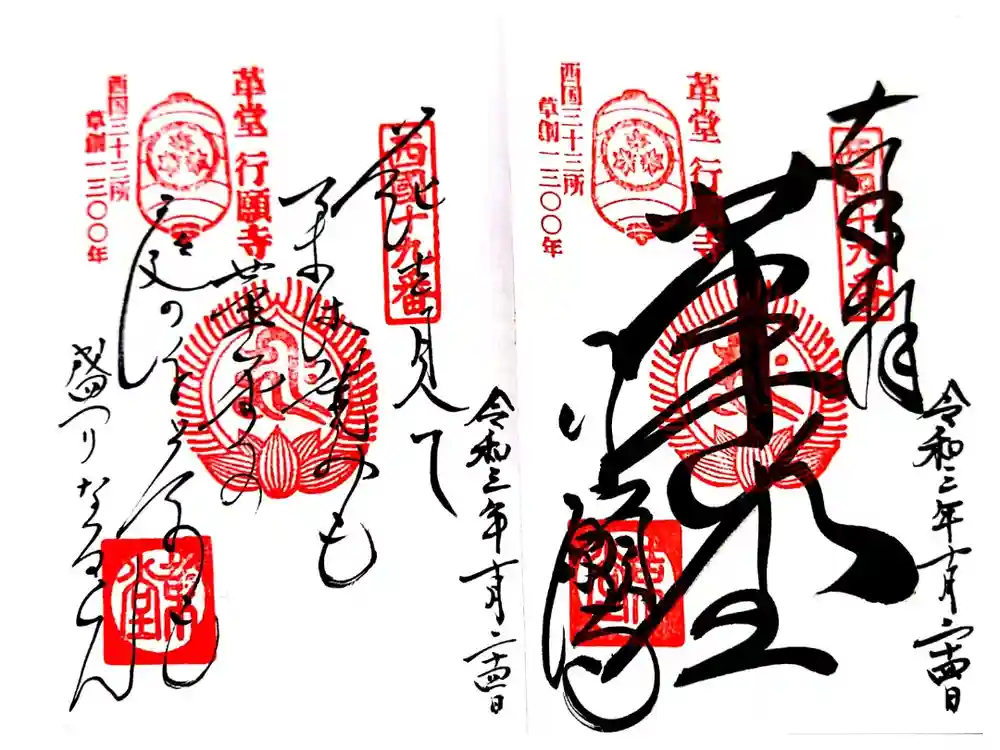 奉拝
西國十九番
令和三年十月二十四日
革堂 行願寺
西国三十三所
草創一三〇〇年
革堂
行願寺
西國十九番
花を見て
令和三年十月二十四日
革堂 行願寺
西国三十三所
草創一三〇〇年
望みも
革堂の
庭の千草も
盛りなるらん
革堂